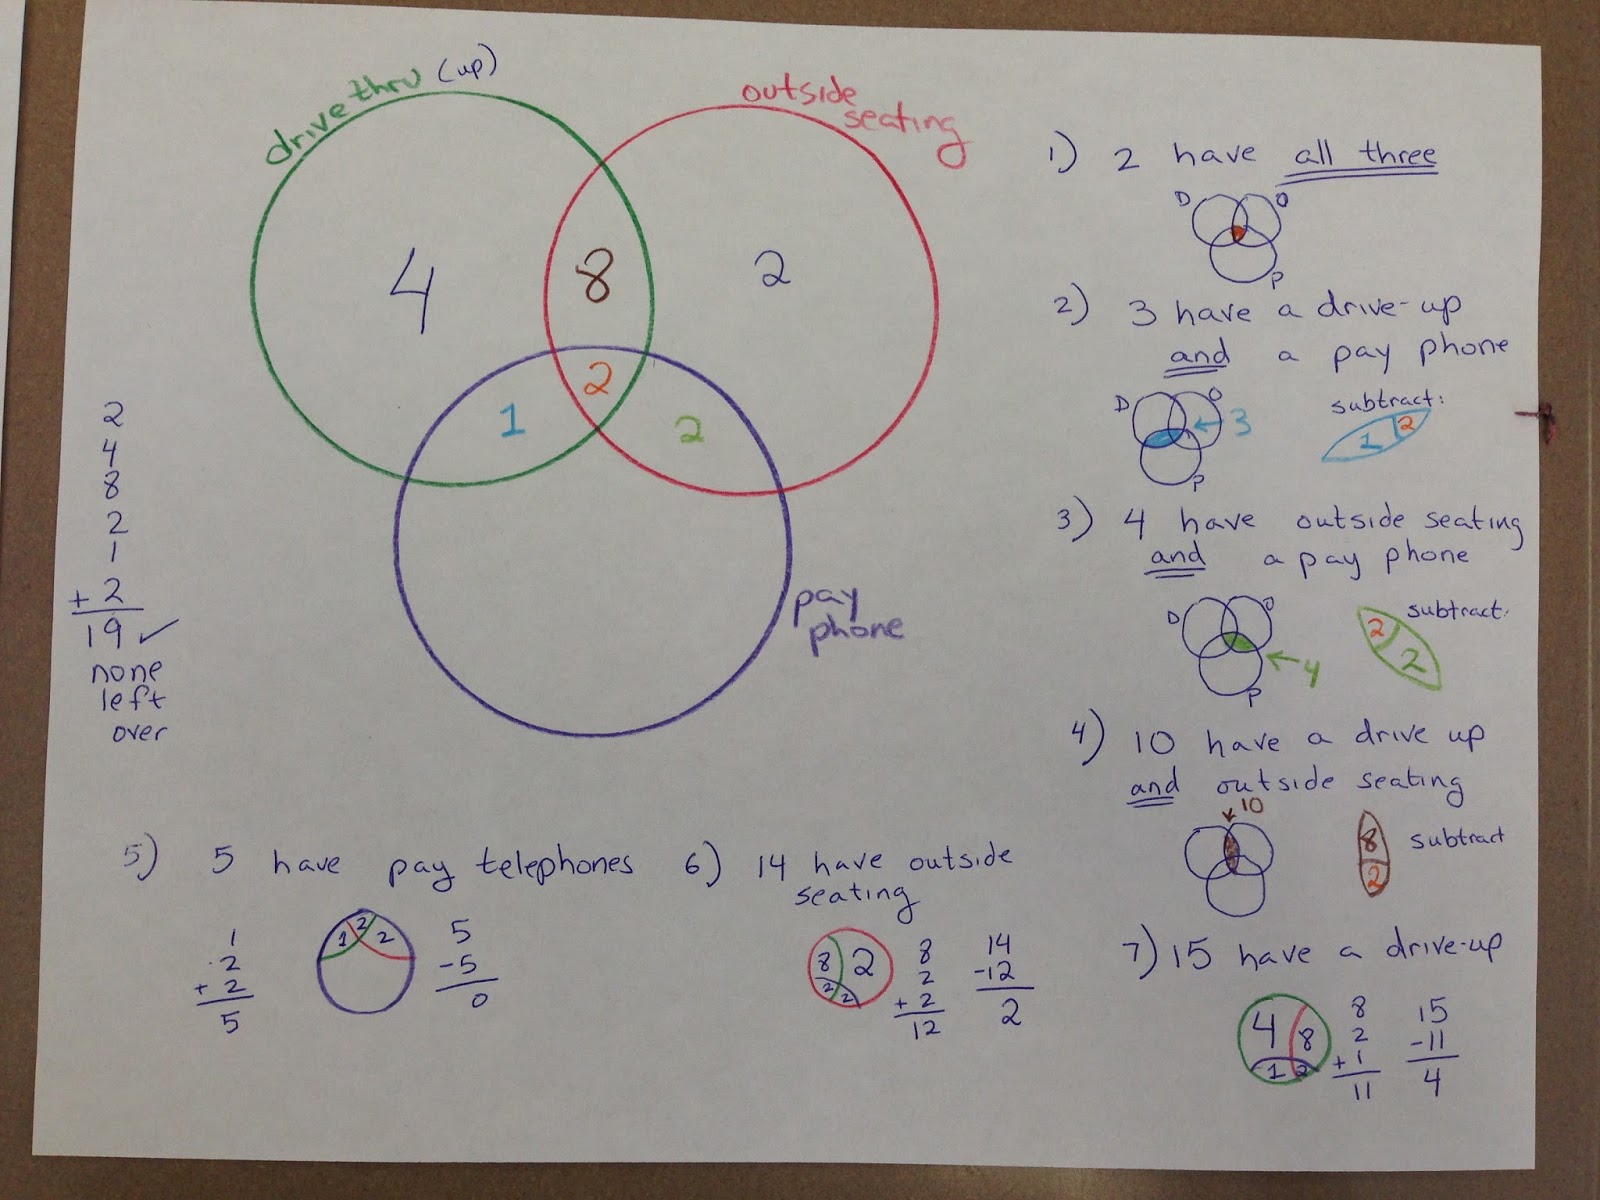 drive thru (up)
outside
seating
4
8
2
2
1
2
pay
phone
2
4
8
2
1
+ 2
19 ✓
none
left
over
1) 2 have all three
D O
P
2) 3 have a drive-up
and a pay phone
D O
← 3
P
subtract:
1 2
3) 4 have outside seating
and a pay phone
D O
← 4
P
subtract:
2
2
4) 10 have a drive up
and outside seating
10
8
2
subtract
5) 5 have pay telephones
1
2
+ 2
5
1 2 2
5
-5
0
6) 14 have outside
seating
8 2
2 2
8
2
+ 2
12
14
-12
2
7) 15 have a drive-up
4 8
1 2
8
2
+ 1
11
15
-11
4